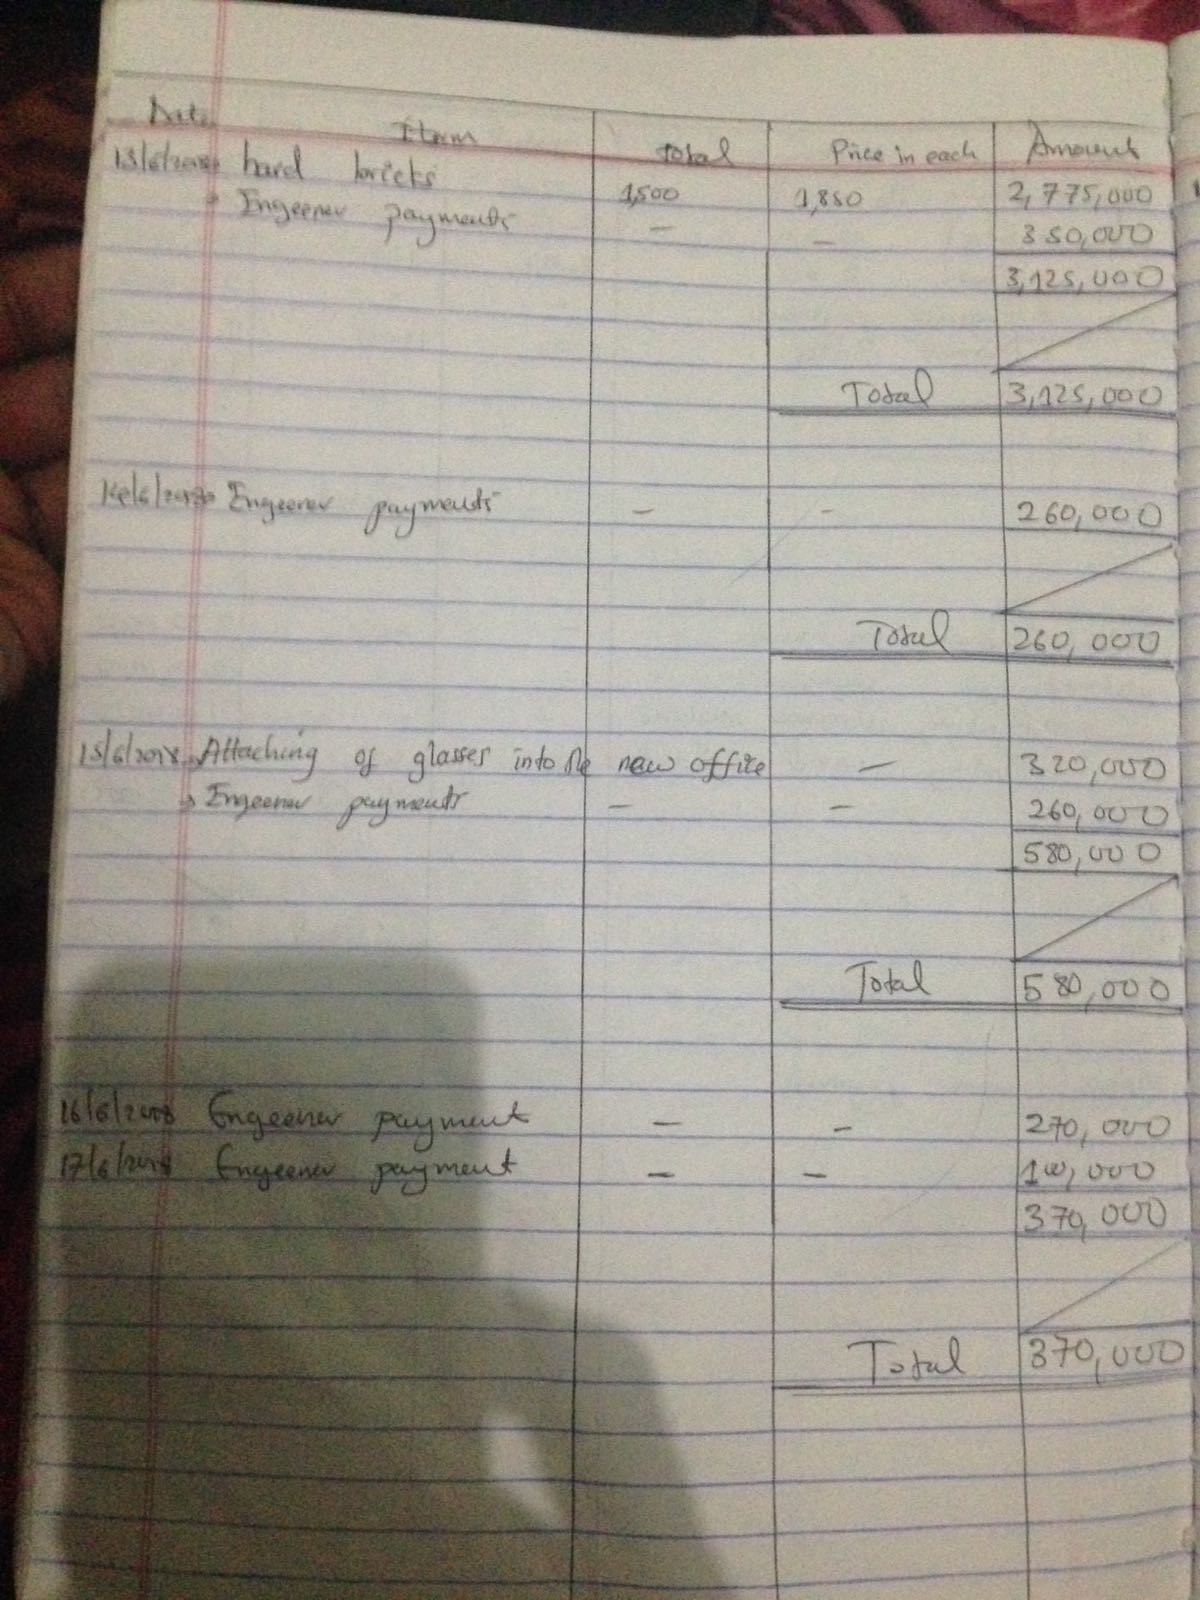 Date Item Total Price in each Amount
13/6/2018 hard bricks 1,500 1,850 2,775,000
Engeener payments - - 350,000
3,125,000
Total 3,125,000
14/6/2018 Engeener payments - - 260,000
Total 260,000
15/6/2018 Attaching of glasses into the new office - 320,000
Engeener payments - - 260,000
580,000
Total 580,000
16/6/2018 Engeener payment - - 270,000
17/6/2018 Engeener payment - - 100,000
370,000
Total 370,000